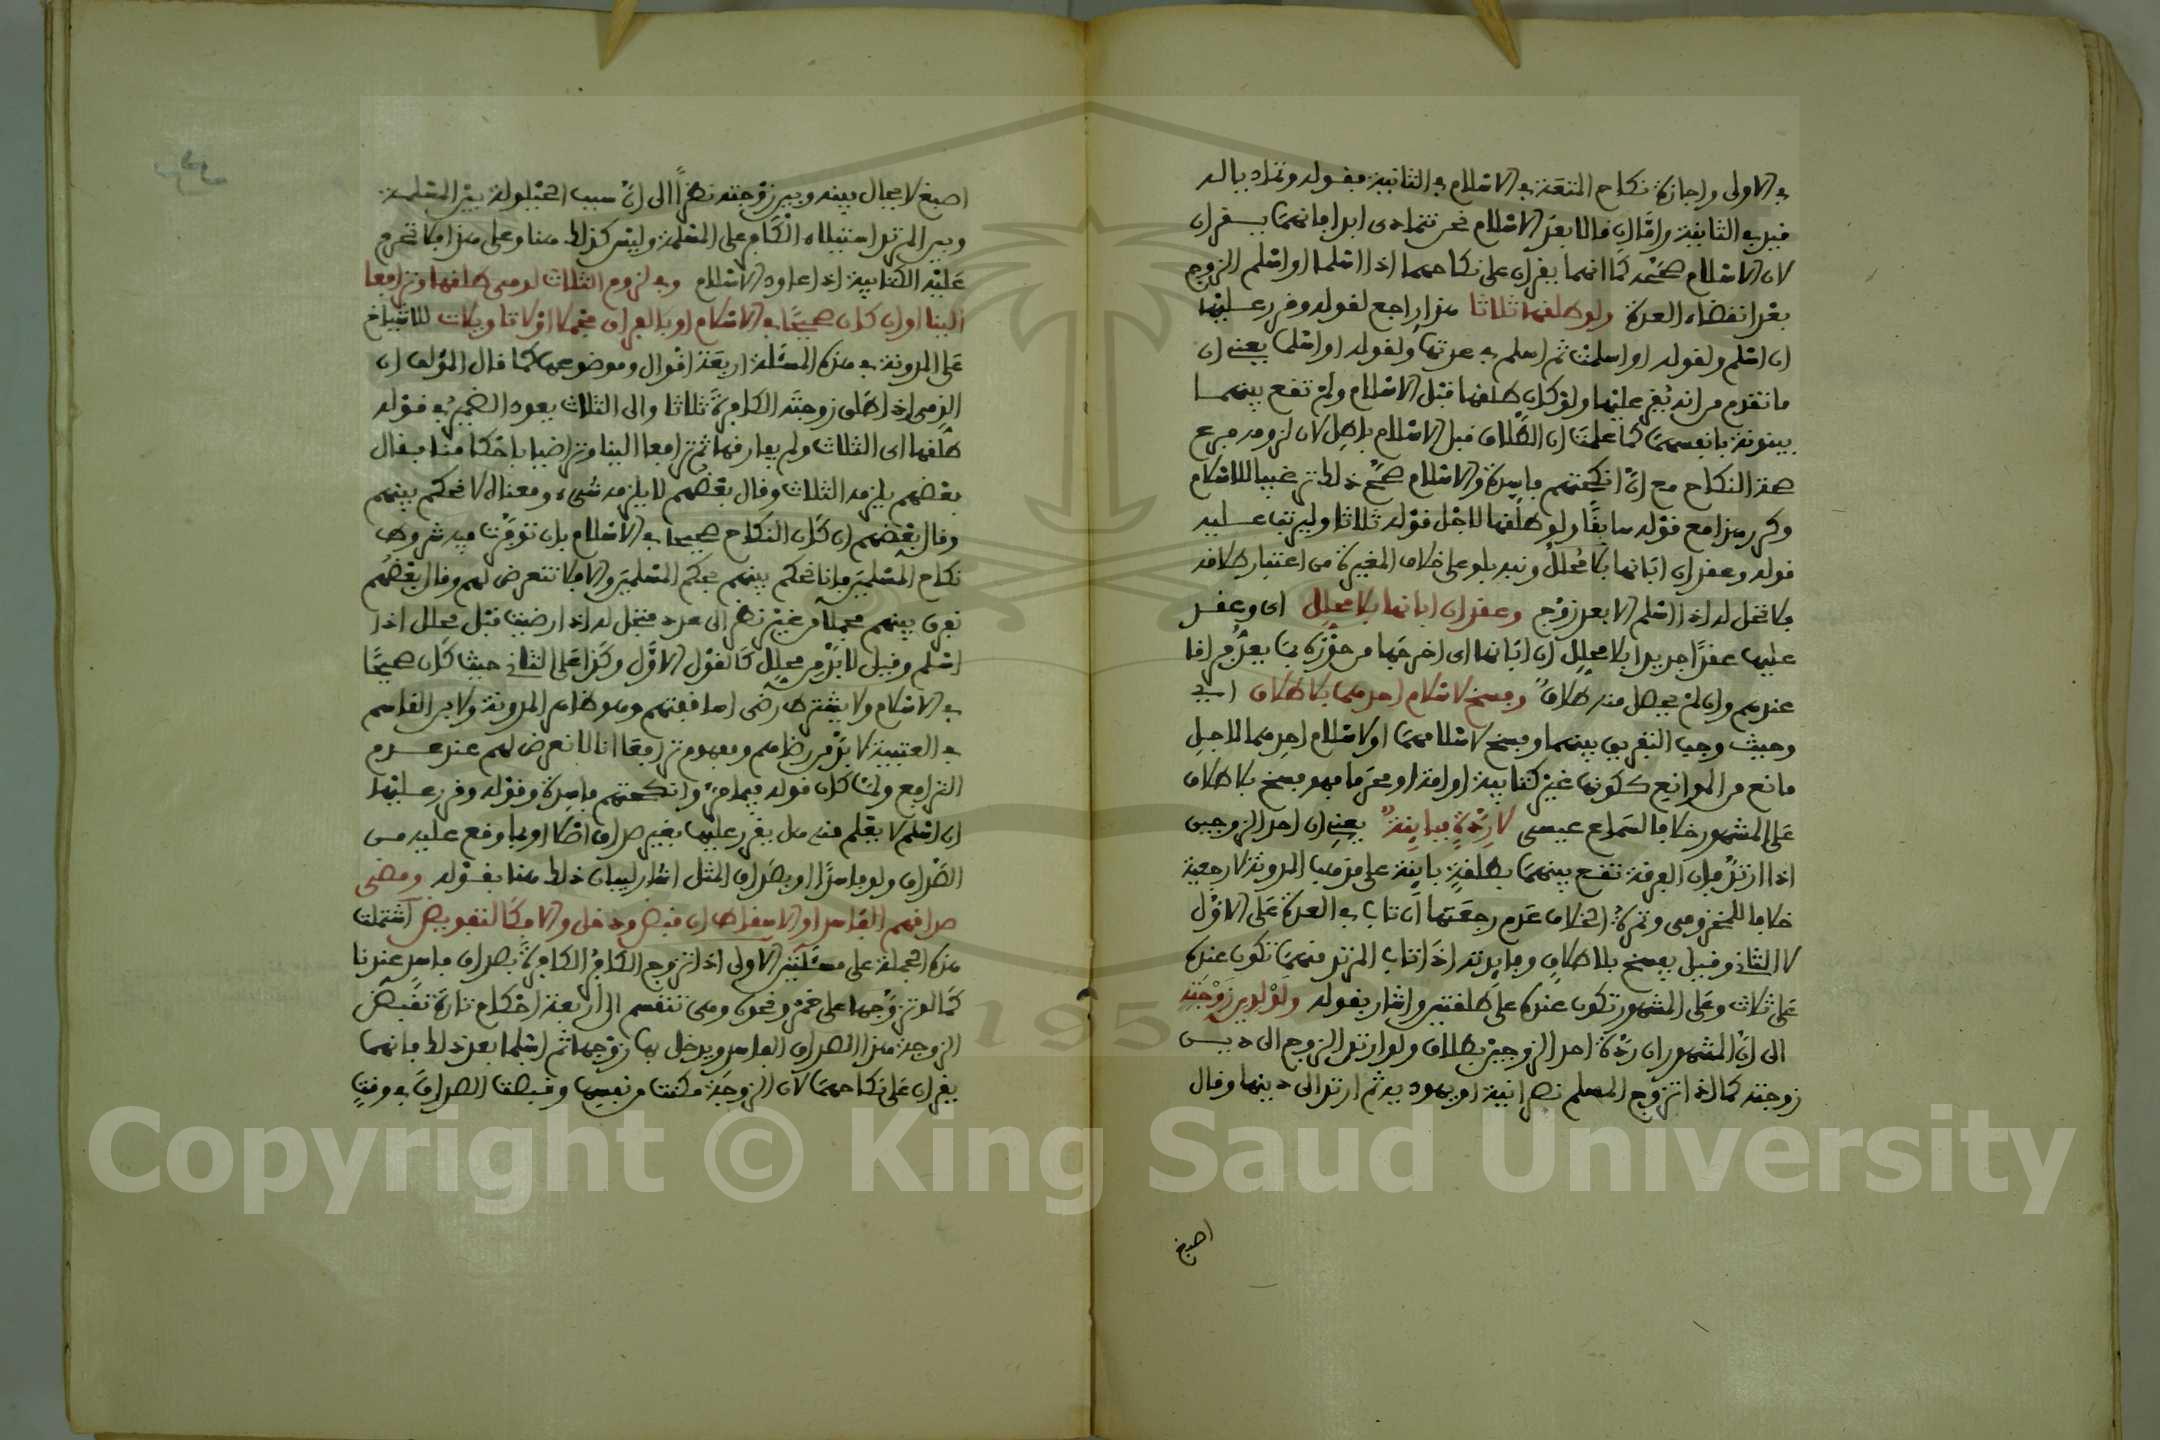 في الاولى واجازة نكاح المتعة في الاسلام في الثانية فقوله وتماديا له
قيد في الثانية واما ان قالا بعد الاسلام نحن نتمادى ابدا فانهما يقران
لان الاسلام صححه كما انهما يقران على نكاحهما اذا اسلما او اسلم الزوج
بعد انقضاء العدة ولو طلقها ثلاثا هذا راجع لقوله وقرر عليها
ان اسلم ولقوله او اسلمت ثم اسلم في عدتها ولقوله او اسلما يعني ان
ما تقدم من انه يقر عليها ولو كان طلقها قبل الاسلام ولم تقع بينهما
بينونة بانفسهما كما علمت ان الطلاق قبل الاسلام باطل لان لزومه فرع
صحة النكاح مع ان انكحتهم فاسدة والاسلام صحح ذلك ترغيبا للاسلام
وكرر هذا مع قوله سابقا ولو طلقها لاجل قوله ثلاثا وليرتب عليه
قوله وعقد ان ابانها بلا محلل ونبه بلو على خلاف المغيرة من اعتبار طلاقه
فلا تحل له اذا اسلم الا بعد زوج وعقد ان ابانها بلا محلل اي وعقد
عليها عقدا جديدا بلا محلل ان ابانها اي اخرجها من حوزه بما يعد فراقا
عندهم وان لم يحصل منه طلاق وفسخ لاسلام احدهما بلا طلاق اي
وحيث وجب التفريق بينهما وفسخ لاسلامهما او لاسلام احدهما لاجل
مانع من الموانع ككونها غير كتابية او امة او محرما فهو فسخ بلا طلاق
على المشهور خلافا لسماع عيسى لا ردته فباينة يعني ان احد الزوجين
اذا ارتد فان الفرقة تقع بينهما بطلقة باينة على مذهب المدونة لا رجعية
خلافا للمخزومي وثمرة الخلاف عدم رجعتها ان تاب في العدة على الاول
لا الثاني وقيل يفسخ بلا طلاق وفايدته اذا تاب المرتد منهما تكون عنده
على ثلاث وعلى المشهور تكون عنده على طلقتين واشار بقوله ولو لدين زوجته
الى ان المشهور ان ردة احد الزوجين طلاق ولو ارتد الزوج الى دين
زوجته كما اذا تزوج المسلم نصرانية او يهودية ثم ارتد الى دينها وقال
اصبغ
اصبغ لا يحال بينه وبين زوجته نظرا الى ان سبب الحيلولة بين المسلمة
وبين المرتد استيلاء الكافر على المسلمة وليس كذلك هنا وعلى هذا فلا تحرم
عليه الكتابية اذا عاود الاسلام وفي لزوم الثلاث لذمي طلقها وترافعا
الينا او ان كان صحيحا في الاسلام او بالفراق مجملا اولا تاويلات للاشياخ
على المدونة في هذه المسئلة اربعة اقوال وموضوعها كما قال المؤلف ان
الذمي اذا طلق زوجته الكافرة ثلاثا والى الثلاث يعود الضمير في قوله
طلقها اي الثلاث ولم يفارقها ثم ترافعا الينا وتراضيا باحكامنا فقال
بعضهم يلزمه الثلاث وقال بعضهم لا يلزمه شيء ومعناه لا نحكم بينهم
وقال بعضهم ان كان النكاح صحيحا في الاسلام بان توفرت فيه شروط
نكاح المسلمين فانا نحكم بينهم بحكم المسلمين والا فلا نتعرض لهم وقال بعضهم
نفرق بينهم مجملا من غير نظر الى عدد فتحل له اذا رضيت قبل محلل اذا
اسلم وقيل لا بد من محلل كالقول الاول وكذا على الثاني حيث كان صحيحا
في الاسلام ولا يشترط رضى اساقفتهم وهو ظاهر المدونة ولابن القاسم
في العتبية لا بد من رضاهم ومفهوم ترافعا انا لا نعرض لهم عند عدم
الترافع ولما كان قوله فيما مر وانكحتهم فاسدة وقوله وقرر عليها
ان اسلم لا يعلم منه هل يقرر عليها بغير صداق اصلا او بما وقع عليه من
الصداق ولو فاسدا او بصداق المثل اشار لبيان ذلك هنا بقوله ومضى
صداقهم الفاسد او الاسقاط ان قبض ودخل والا فكالتفويض اشتملت
هذه الجملة على مسئلتين الاولى اذا تزوج الكافر الكافرة بصداق فاسد عندنا
كما لو تزوجها على خمر ونحوه وهي تنقسم الى اربعة احكام تارة تقبض
الزوجة هذا الصداق الفاسد ويدخل بها زوجها ثم اسلما بعد ذلك فانهما
يقران على نكاحهما لان الزوجة مكنت من نفسها وقبضت الصداق في وقت